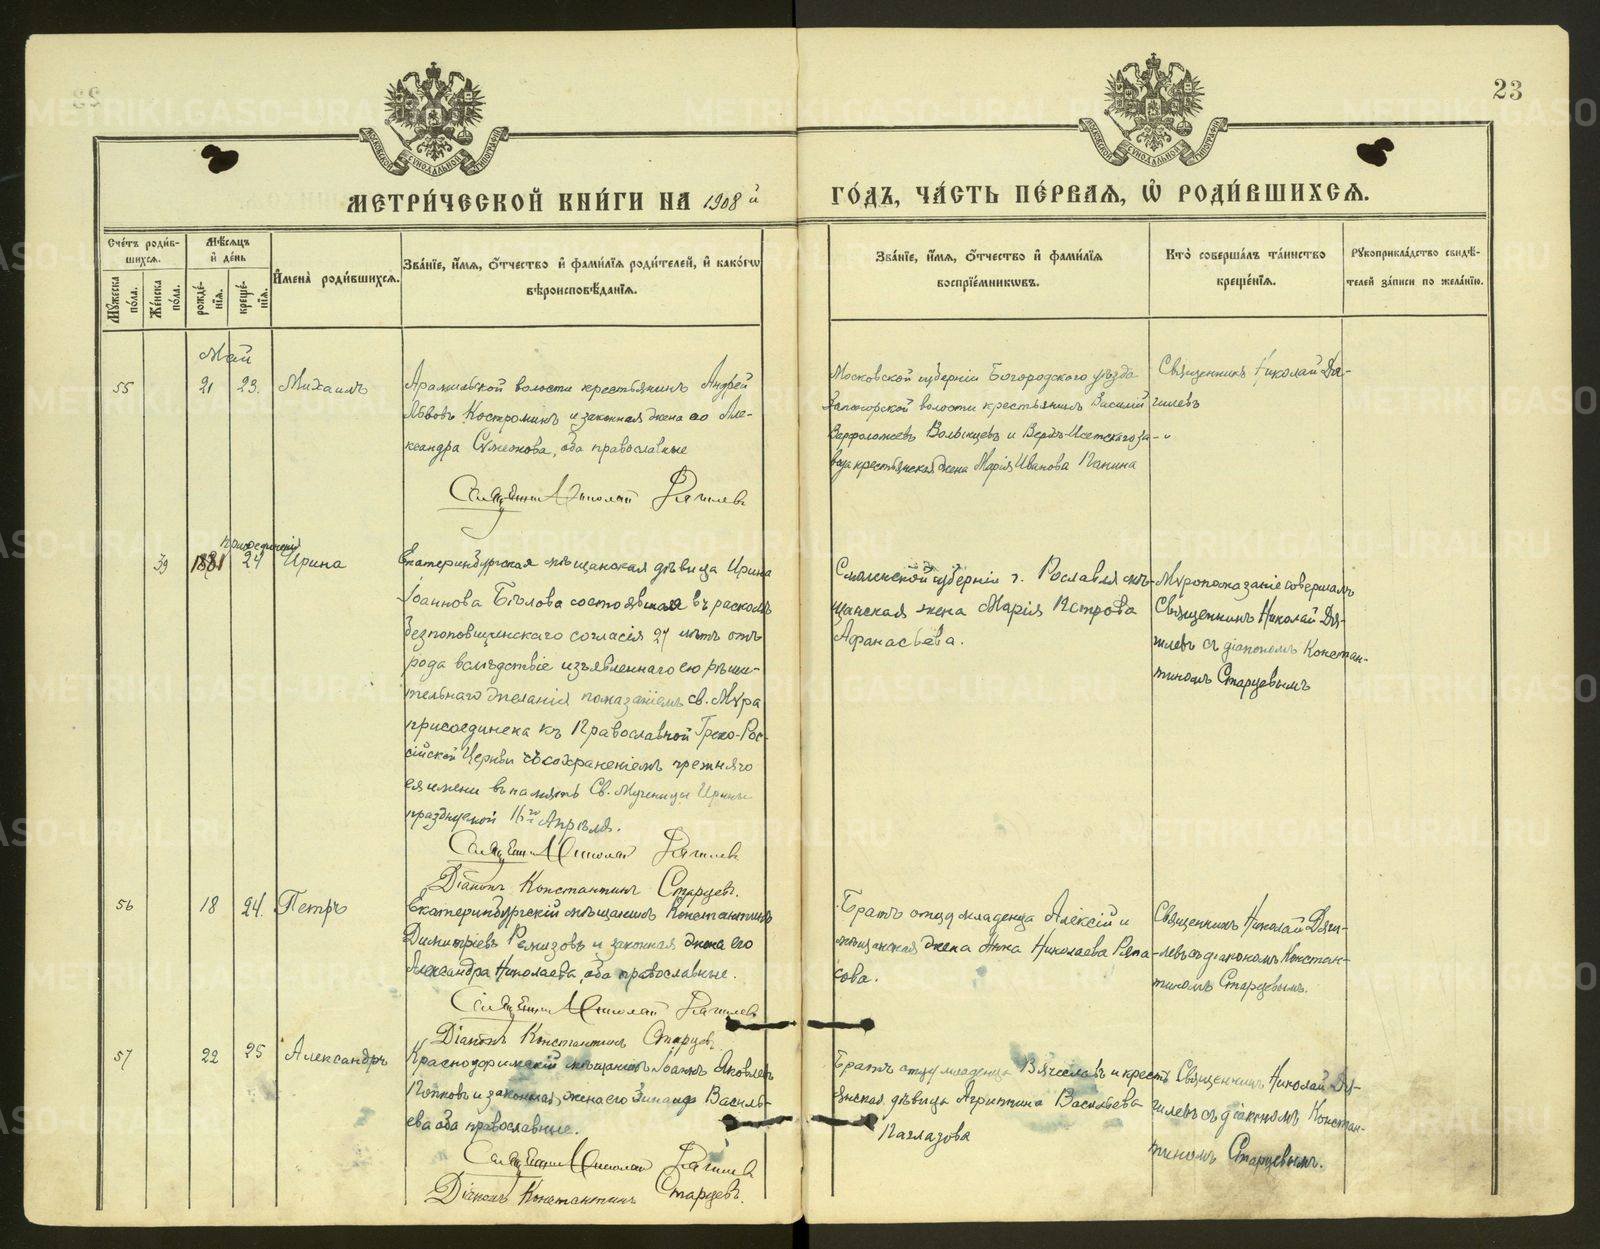 23
МЕТРИ́ЧЕСКОЙ КНИ́ГИ НА 1908 й
ГО́ДЪ, ЧА́СТЬ ПЕ́РВАЯ, Ѡ РОДИ́ВШИХСЯ.
Сче́тъ роди́в-
шихся.
Му́жеска по́ла.
Же́нска по́ла.
Мѣ́сяцъ
и де́нь
рожде́-
нія.
креще́-
нія.
Имена̀ роди́вшихся.
Зва́ніе, и́мя, о́тчество и фами́лія роди́телей, и како́гѡ
вѣроисповѣ́данія.
Зва́ніе, и́мя, о́тчество и фами́лія
воспріе́мниковъ.
Кто̀ соверша́лъ та́инство
креще́нія.
Рукоприкла́дство свидѣ́-
телей за́писи по жела́нію.
Май
55 21 23. Михаилъ
Арамильской волости крестьянинъ Андрей
Львовъ Костроминъ и законная жена его Але-
ксандра Симеонова, оба православные
Священникъ Николай Дягилевъ
Московской губерніи Богородского уѣзда
волости крестьянинъ Василій
Варфоломеевъ Волынцевъ и Верхъ-Исетскаго за-
вода крестьянская жена Марія Иванова Панина
Священникъ Николай Дя-
гилевъ
39 1881 присоединенія 24 Ирина
Екатеринбургская мѣщанская дѣвица Ирина
Іоаннова Бѣлова состоявшая въ расколѣ
безпоповщинскаго согласія 27 лѣтъ отъ
рода вслѣдствіе изъявленнаго ею рѣши-
тельнаго желанія помазаніемъ св. Мѵра
присоединена къ Православной Греко-Рос-
сійской Церкви съ сохраненіемъ прежняго
ея имени въ память Св. Мученицы Ирины
празднуемой 16го Апрѣля.
Священникъ Николай Дягилевъ
Діаконъ Константинъ Старцевъ.
Смоленской губерніи г. Рославля мѣ-
щанская жена Марія Петрова
Афанасьева.
Мѵропомазаніе совершалъ
Священникъ Николай Дя-
гилевъ съ діакономъ Констан-
тиномъ Старцевымъ
56 18 24. Петръ
Екатеринбургскій мѣщанинъ Константинъ
Димитріевъ Ремизовъ и законная жена его
Александра Николаева, оба православные.
Священникъ Николай Дягилевъ
Діаконъ Константинъ Старцевъ
Братъ отцу младенца Алексій и
мѣщанская жена Анна Николаева Ряпа-
сова.
Священникъ Николай Дяги-
левъ съ діакономъ Констан-
тиномъ Старцевымъ.
57 22 25 Александръ
Красноуфимскій мѣщанинъ Іоаннъ Яковлевъ
Попковъ и законная жена его Зинаида Василь-
ева оба православные.
Священникъ Николай Дягилевъ
Діаконъ Константинъ Старцевъ.
Братъ отцу младенца Вячеславъ и кресть
янская дѣвица Агриппина Васильева
Паглазова
Священникъ Николай Дя-
гилевъ съ діакономъ Констан-
тиномъ Старцевымъ.